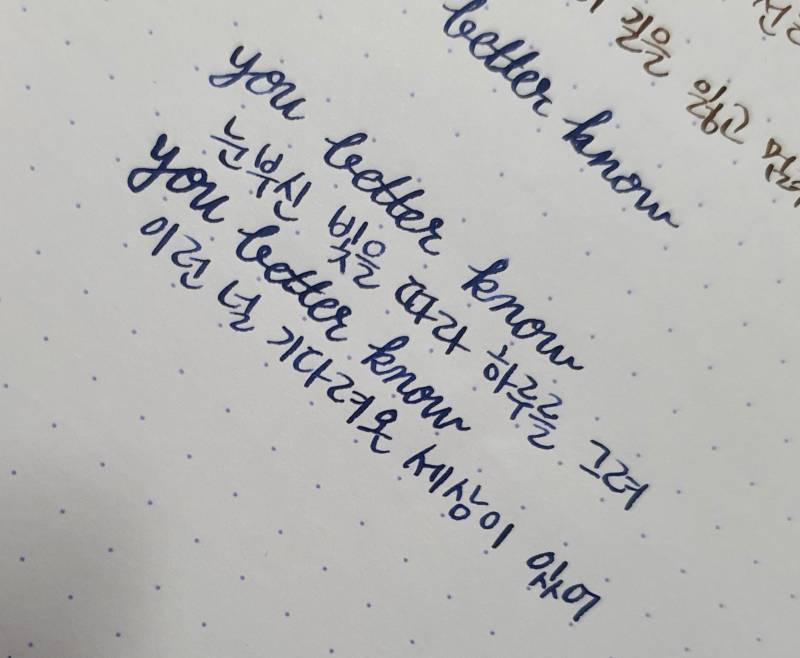 길을 잃고
better know
you better know
눈부신 빛을 따라 하루를 그려
you better know
이런 널 기다려온 세상이 있어